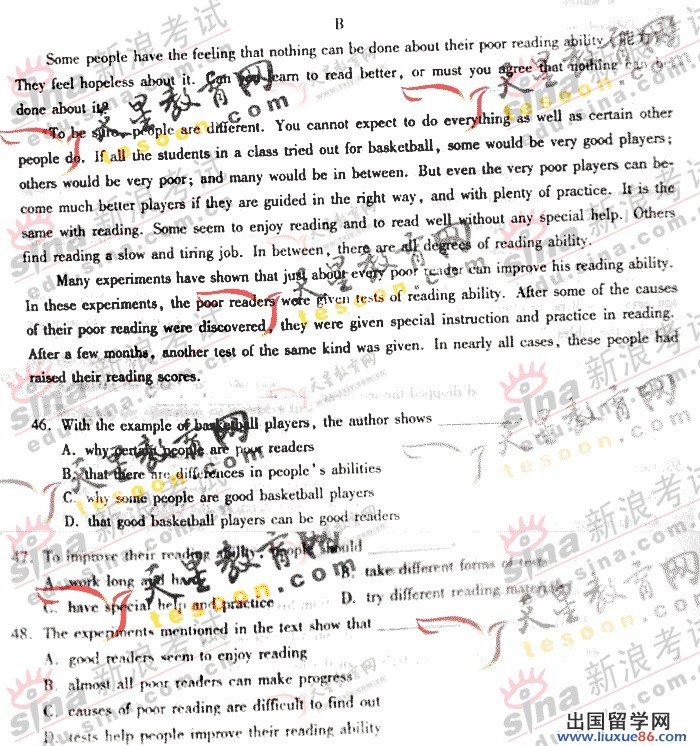 B
Some people have the feeling that nothing can be done about their poor reading ability (能力).
They feel hopeless about it. Can you learn to read better, or must you agree that nothing can be
done about it?
To be sure, people are different. You cannot expect to do everything as well as certain other
people do. If all the students in a class tried out for basketball, some would be very good players;
others would be very poor; and many would be in between. But even the very poor players can be-
come much better players if they are guided in the right way, and with plenty of practice. It is the
same with reading. Some seem to enjoy reading and to read well without any special help. Others
find reading a slow and tiring job. In between, there are all degrees of reading ability.
Many experiments have shown that just about every poor reader can improve his reading ability.
In these experiments, the poor readers were given tests of reading ability. After some of the causes
of their poor reading were discovered, they were given special instruction and practice in reading.
After a few months, another test of the same kind was given. In nearly all cases, these people had
raised their reading scores.
46. With the example of basketball players, the author shows ______
A. why certain people are poor readers
B. that there are differences in people's abilities
C. why some people are good basketball players
D. that good basketball players can be good readers
47. To improve their reading ability, people should ______
A. work long and hard B. take different forms of tests
C. have special help and practice D. try different reading materials
48. The experiments mentioned in the text show that ______
A. good readers seem to enjoy reading
B. almost all poor readers can make progress
C. causes of poor reading are difficult to find out
D. tests help people improve their reading ability
sina 新浪考试
edu.sina.com
天星教育网
tesoon.com
出国留学网
www.liuxue86.com